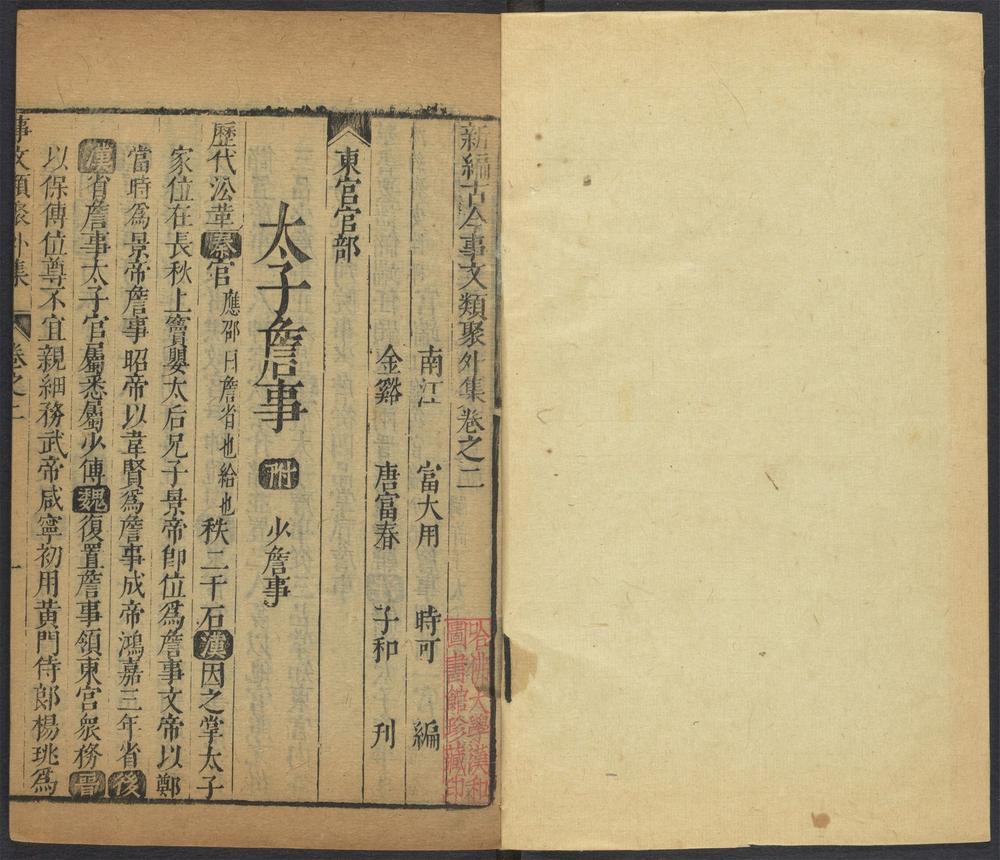 新編古今事文類聚外集卷之二
南江 富大用 時可 編
金谿 唐富春 子和 刊
東官官部
太子詹事 附 少詹事
歷代沿革秦官應邵曰詹省也給也秩二千石漢因之掌太子
家位在長秋上竇嬰太后兄子景帝卽位爲詹事文帝以鄭
當時爲景帝詹事昭帝以韋賢爲詹事成帝鴻嘉三年省後
漢省詹事太子官屬悉屬少傅魏復置詹事領東宮衆務晉
以保傅位尊不宜親細務武帝咸寧初用黃門侍郎楊珧爲
事文類聚外集 卷之二 一
哈佛大學漢和
圖書館珍藏印